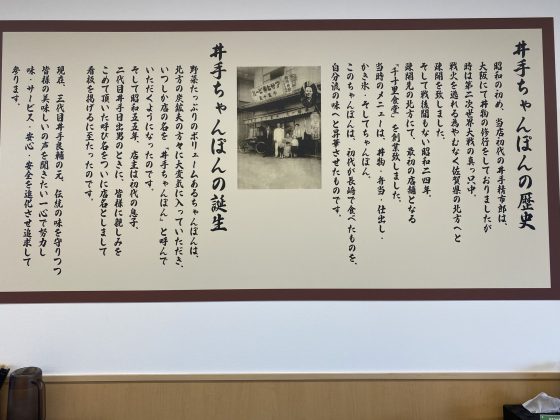 井手ちゃんぽんの歴史
昭和の初め、当店初代の井手精市郎は、
大阪にて丼物の修行をしておりましたが
時は第二次世界大戦の真っ只中、
戦火を逃れる為やむなく佐賀県の北方へと
疎開を致しました。
そして戦後間もない昭和二四年、
疎開先の北方にて、最初の店舗となる
「千十里食堂」を創業致しました。
当時のメニューは、丼物・弁当・仕出し・
かき氷・そしてちゃんぽん。
このちゃんぽんは、初代が長崎で食べたものを、
自分流の味へと昇華させたものです。
井手ちゃんぽんの誕生
野菜たっぷりのボリュームあるちゃんぽんは、
北方の炭鉱夫の方々に大変気に入っていただき、
いつしか店の名を「井手ちゃんぽん」と呼んで
いただくようになったのです。
そして昭和五五年、店主は初代の息子、
二代目井手日出男のときに、皆様に親しみを
こめて頂いた呼び名をついに店名としまして
看板を掲げるに至ったのです。
現在、三代目井手良輔の元、伝統の味を守りつつ
皆様の美味しいの声を聞きたい一心で努力し
味・サービス・安心・安全を進化させ追求して
参ります。